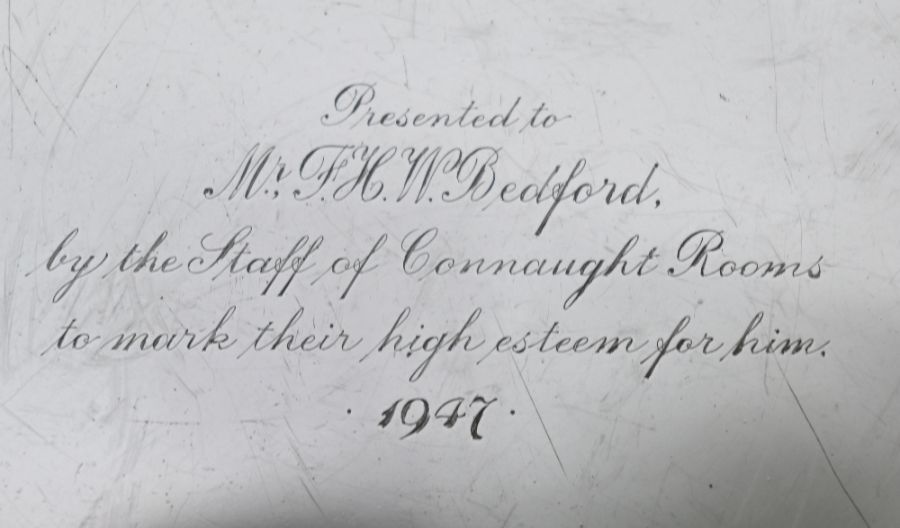 Presented to
Mr. F.H.W. Bedford,
by the Staff of Connaught Rooms
to mark their high esteem for him.
· 1947 ·